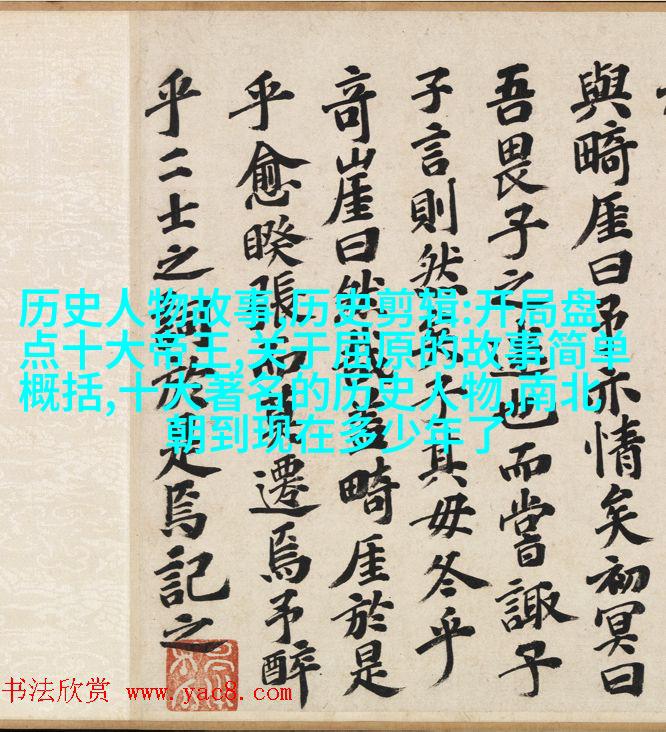 與畸厓曰予亦情矣初冥曰
吾畏子之也而嘗諏子
子言則然子其毋冬乎
奇崖曰然畸厓於是
乎愈睽張遷焉予醉
乎二士之於是焉記之
历史人物故事,历史剪辑:开局盘
点十大帝王,关于屈原的故事简单
概括,十大著名的历史人物,南北
朝到现在多少年了
书法欣赏 www.yac8.com